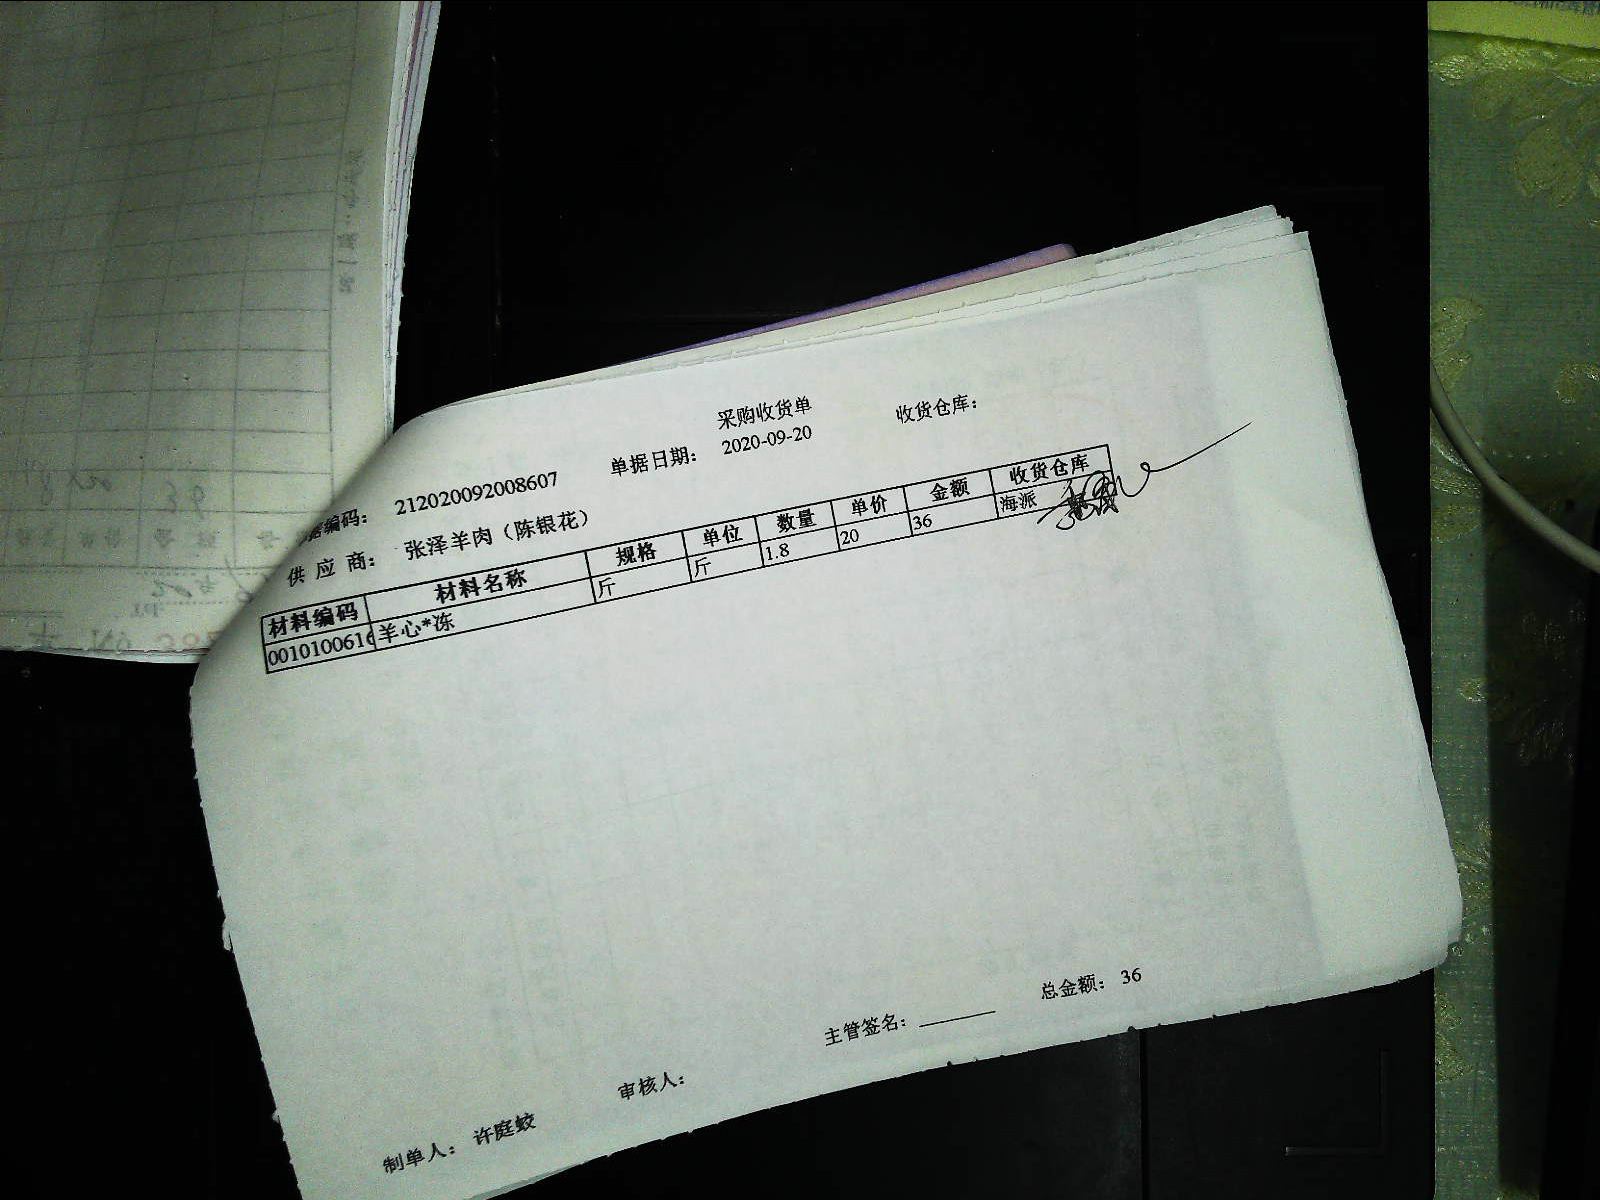 采购收货单
单据编码： 212020092008607 单据日期： 2020-09-20 收货仓库：
供 应 商： 张泽羊肉（陈银花）
材料编码 材料名称 规格 单位 数量 单价 金额 收货仓库
0010100616 羊心*冻 斤 斤 1.8 20 36 海派
总金额： 36
主管签名：
审核人：
制单人： 许庭蛟